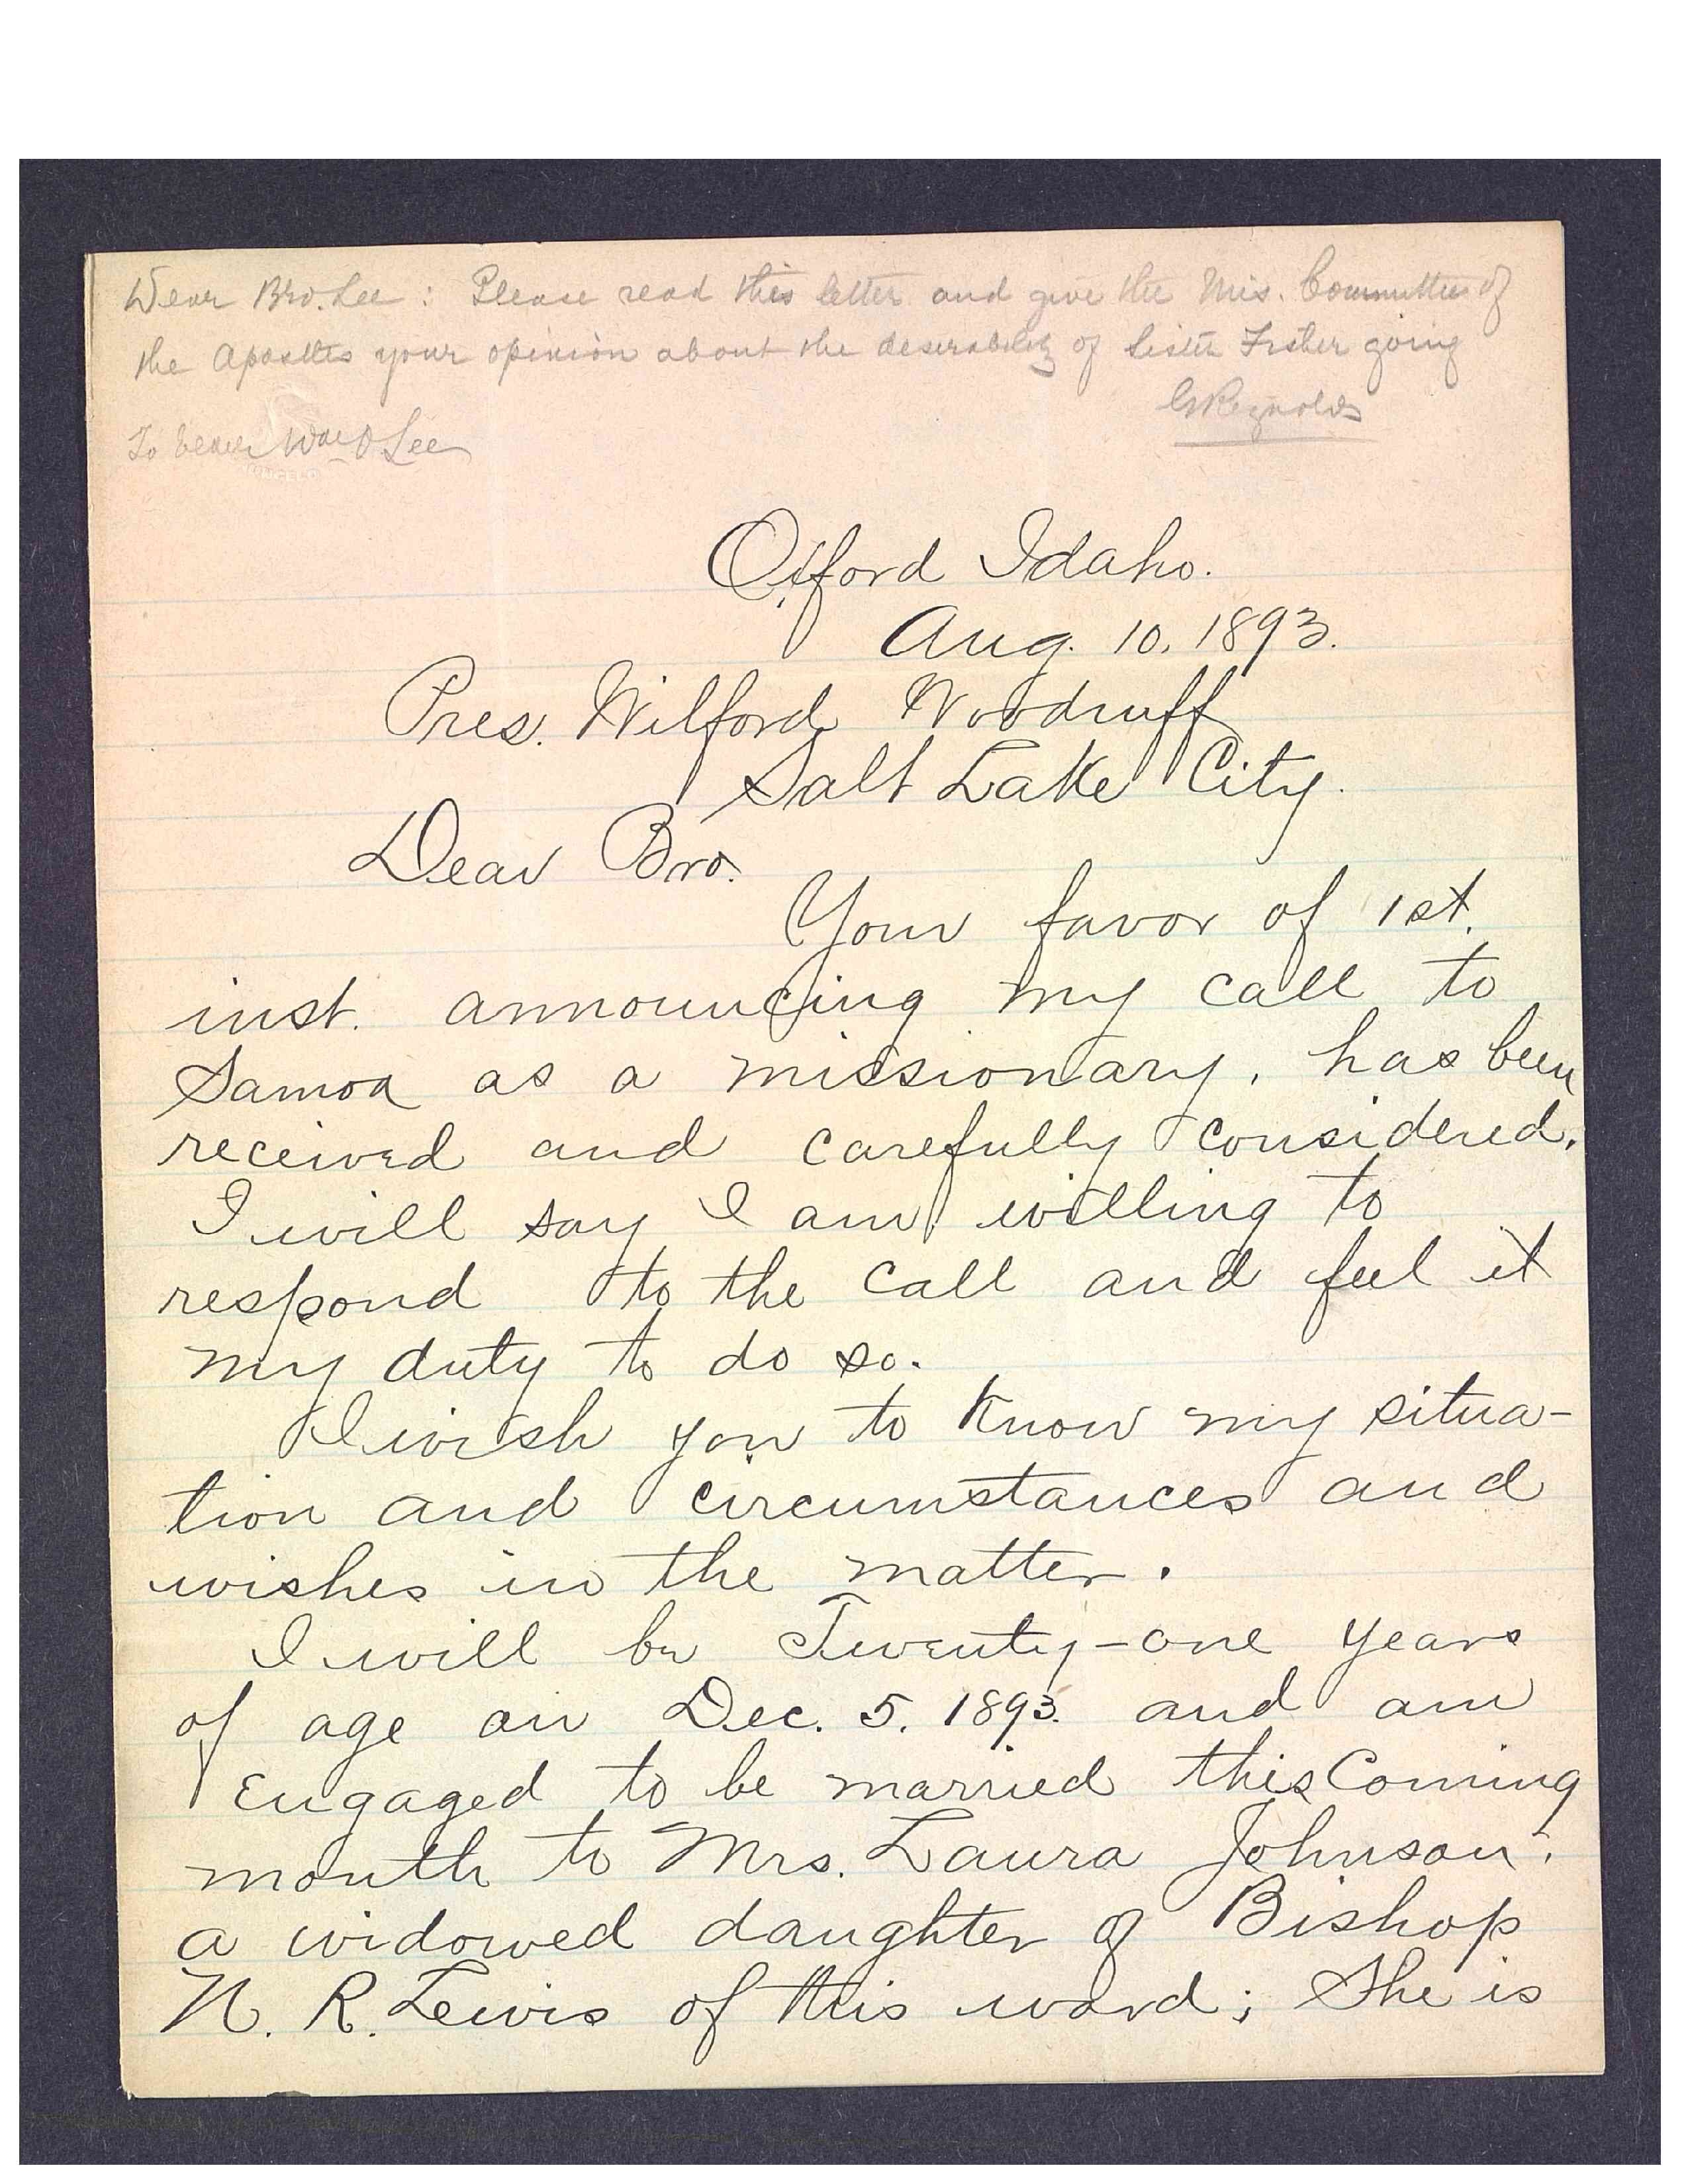 Dear Bro. Lee: Please read this letter and give the Mis. Committee of
the Apostles your opinion about the desirability of Sister Fisher going
G Reynolds
To Wm O Lee
Oxford Idaho.
Aug. 10, 1893.
Pres. Wilford Woodruff
Salt Lake City.
Dear Bro.
Your favor of 1st.
inst. announcing my call to
Samoa as a missionary, has been
received and carefully considered.
I will say I am willing to
respond to the call and feel it
my duty to do so.
I wish you to know my situa-
tion and circumstances and
wishes in the matter.
I will be Twenty-one years
of age on Dec. 5. 1893. and am
Engaged to be married this Coming
month to Mrs. Laura Johnson.
a widowed daughter of Bishop
N. R. Lewis of this ward; She is